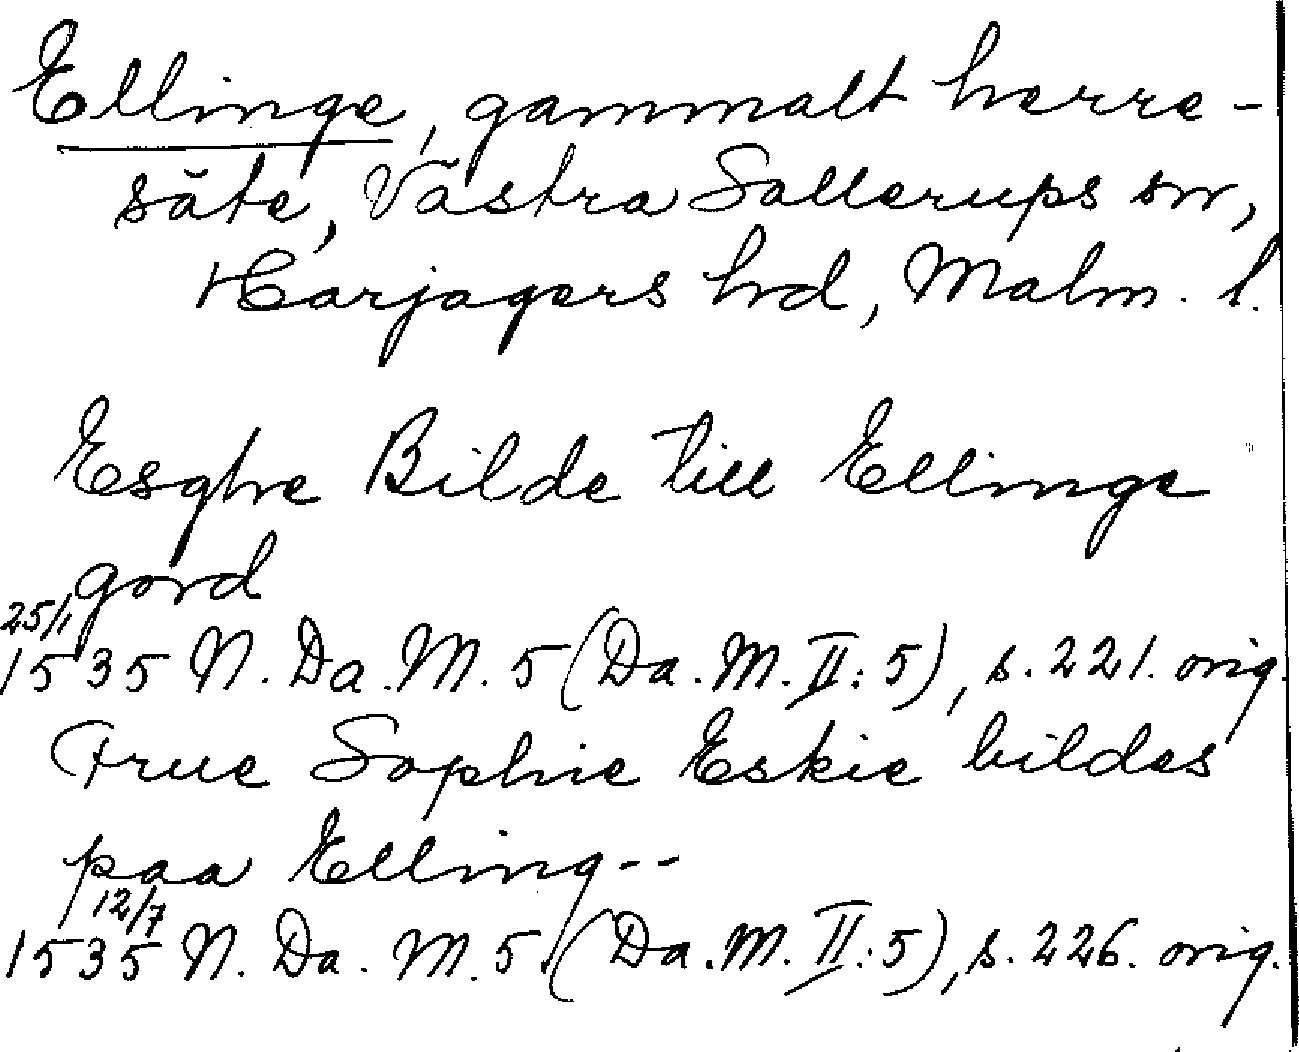 Ellinge, gammalt herre-
säte, Västra Sallerups sn,
Harjagers hd, Malm. l.
Esghe Bilde till Ellinge
gord
25/1
1535 N. Da. M. 5 (Da. M. II: 5), s. 221. orig.
Frue Sophie Eskie bildes
paa Elling--
12/7
1535 N. Da. M. 5. (Da. M. II: 5), s. 226. orig.